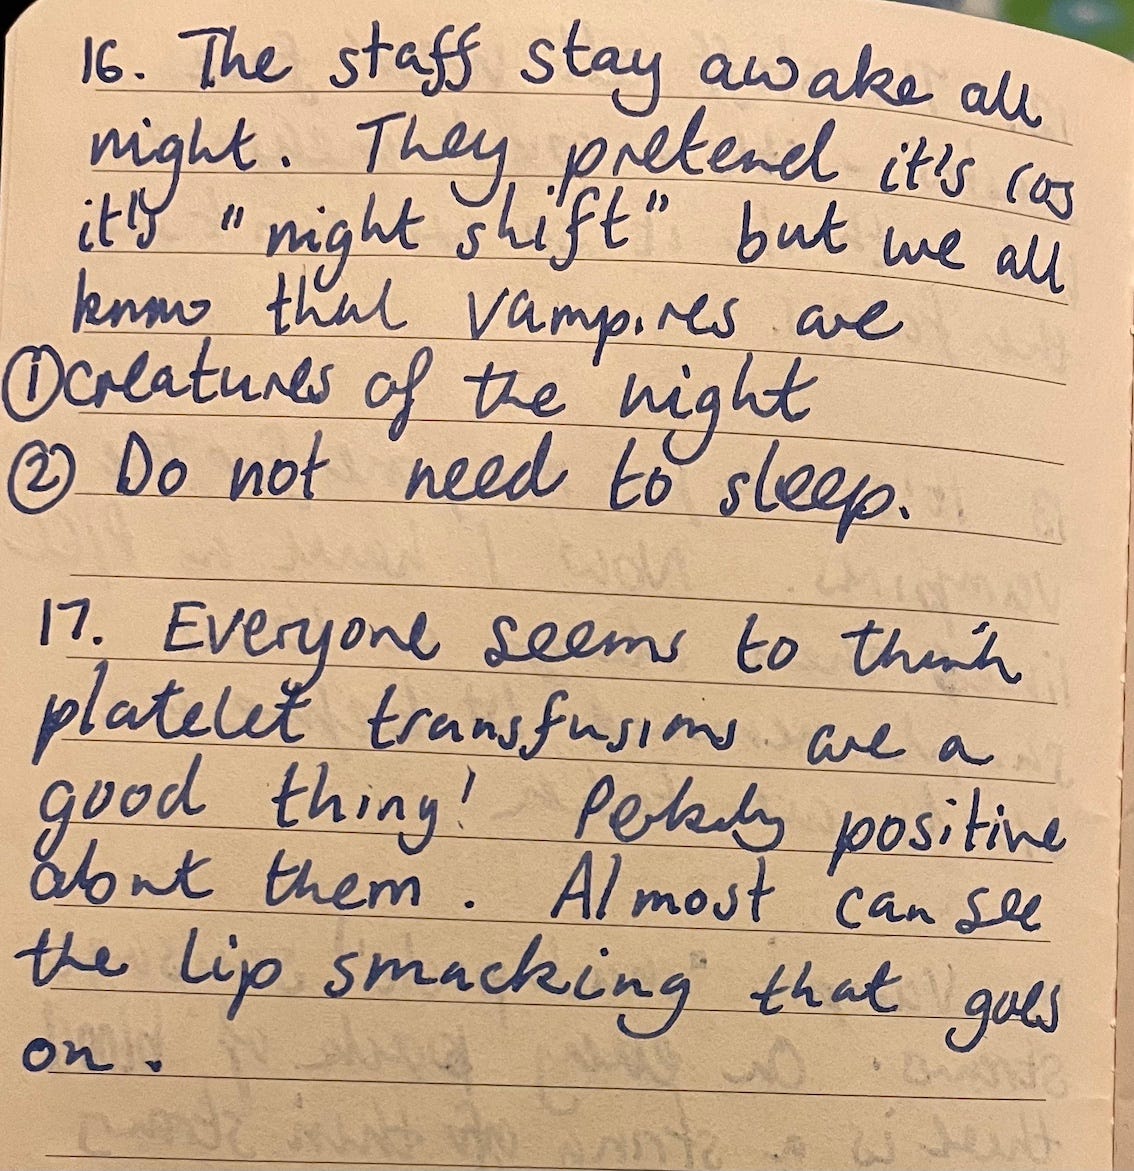 16. The staff stay awake all
night. They pretend it's cos
it's "night shift" but we all
know that vampires are
① creatures of the night
② Do not need to sleep.
17. Everyone seems to think
platelet transfusions are a
good thing! positive
about them. Almost can see
the lip smacking that goes
on.